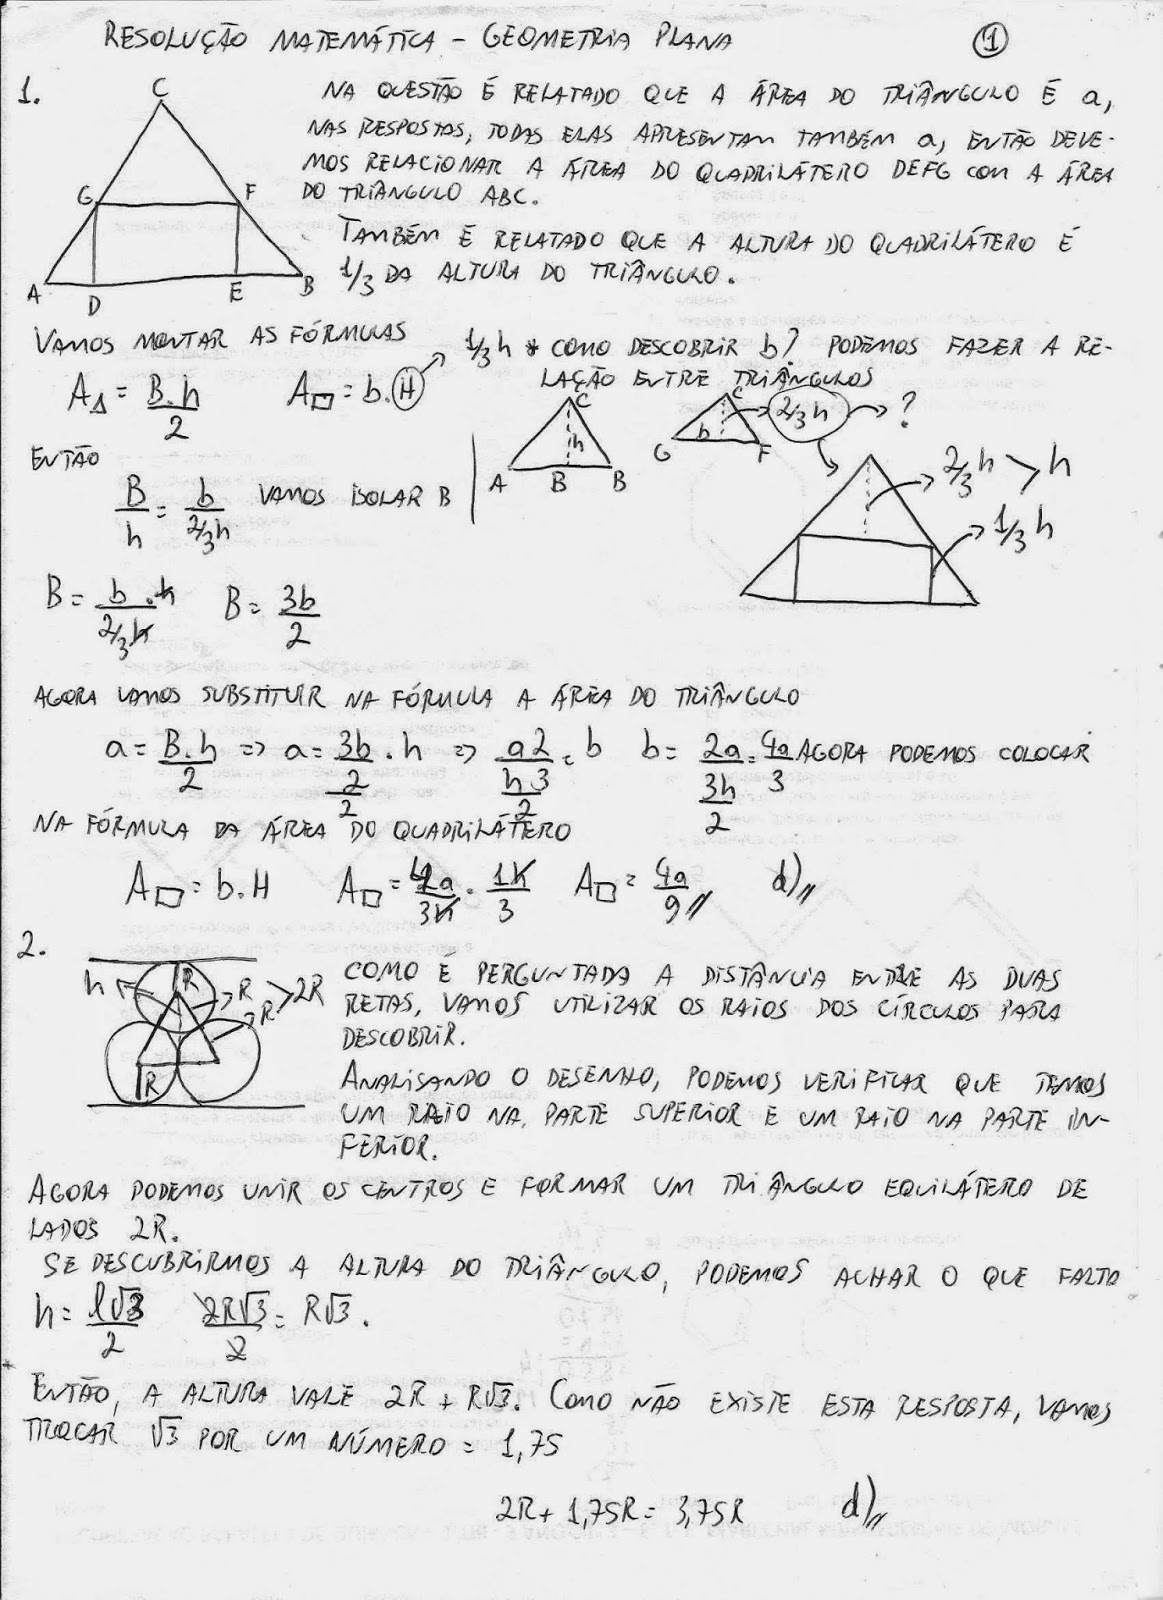 RESOLUÇÃO MATEMÁTICA - GEOMETRIA PLANA 1
1.
C
G F
A D E B
NA QUESTÃO É RELATADO QUE A ÁREA DO TRIÂNGULO É a,
NAS RESPOSTAS, TODAS ELAS APRESENTAM TAMBÉM a, ENTÃO DEVE-
MOS RELACIONAR A ÁREA DO QUADRILÁTERO DEFG COM A ÁREA
DO TRIÂNGULO ABC.
TAMBÉM É RELATADO QUE A ALTURA DO QUADRILÁTERO É
1/3 DA ALTURA DO TRIÂNGULO.
VAMOS MONTAR AS FÓRMULAS
A△ = B.h/2 A□ = b.H → 1/3h
* COMO DESCOBRIR b? PODEMOS FAZER A RE-
LAÇÃO ENTRE TRIÂNGULOS
C h A B B
C h G F → 2/3h → ?
2/3h > h
1/3h
ENTÃO
B/h = b/2/3h VAMOS ISOLAR B
B = b.h/2/3h B = 3b/2
AGORA VAMOS SUBSTITUIR NA FÓRMULA A ÁREA DO TRIÂNGULO
a = B.h/2 => a = 3b/2/2 . h => a2/h3/2 = b b = 2a/3h/2 = 4a/3 AGORA PODEMOS COLOCAR
NA FÓRMULA DA ÁREA DO QUADRILÁTERO
A□ = b.H A□ = 4a/3h . 1h/3 A□ = 4a/9 d)
2.
h R R R > 2R
R
COMO É PERGUNTADA A DISTÂNCIA ENTRE AS DUAS
RETAS, VAMOS UTILIZAR OS RAIOS DOS CÍRCULOS PARA
DESCOBRIR.
ANALISANDO O DESENHO, PODEMOS VERIFICAR QUE TEMOS
UM RAIO NA PARTE SUPERIOR E UM RAIO NA PARTE IN-
FERIOR.
AGORA PODEMOS UNIR OS CENTROS E FORMAR UM TRIÂNGULO EQUILÁTERO DE
LADOS 2R.
SE DESCUBRIRMOS A ALTURA DO TRIÂNGULO, PODEMOS ACHAR O QUE FALTA
h = l√3/2 2R√3/2 = R√3.
ENTÃO, A ALTURA VALE 2R + R√3. COMO NÃO EXISTE ESTA RESPOSTA, VAMOS
TROCAR √3 POR UM NÚMERO = 1,75
2R + 1,75R = 3,75R d)